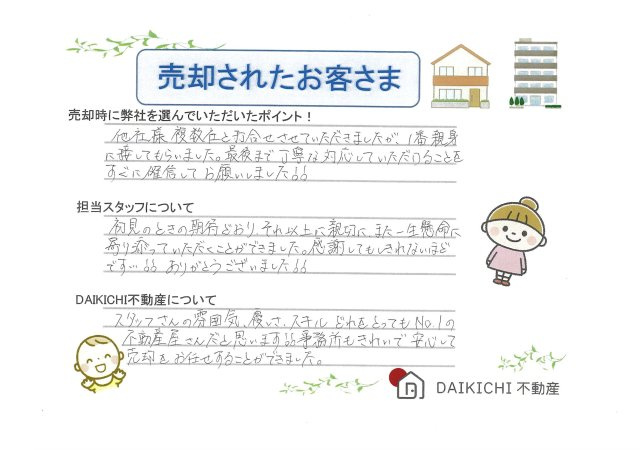 売却されたお客さま
売却時に弊社を選んでいただいたポイント！
他社様複数社と打合せさせていただきましたが、1番親身
に接してもらいました。最後まで丁寧な対応していただけることを
すぐに確信してお願いしました!!
担当スタッフについて
初見のときの期待どおり、それ以上に親切に、また一生懸命に
寄り添っていただくことができました。感謝してもしきれないほど
です…!! ありがとうございました!!
DAIKICHI不動産について
スタッフさんの雰囲気、優しさ、スキル どれをとってもNo.1の
不動産屋さんだと思います!!事務所もきれいで安心して
売却をお任せすることができました。
DAIKICHI 不動産